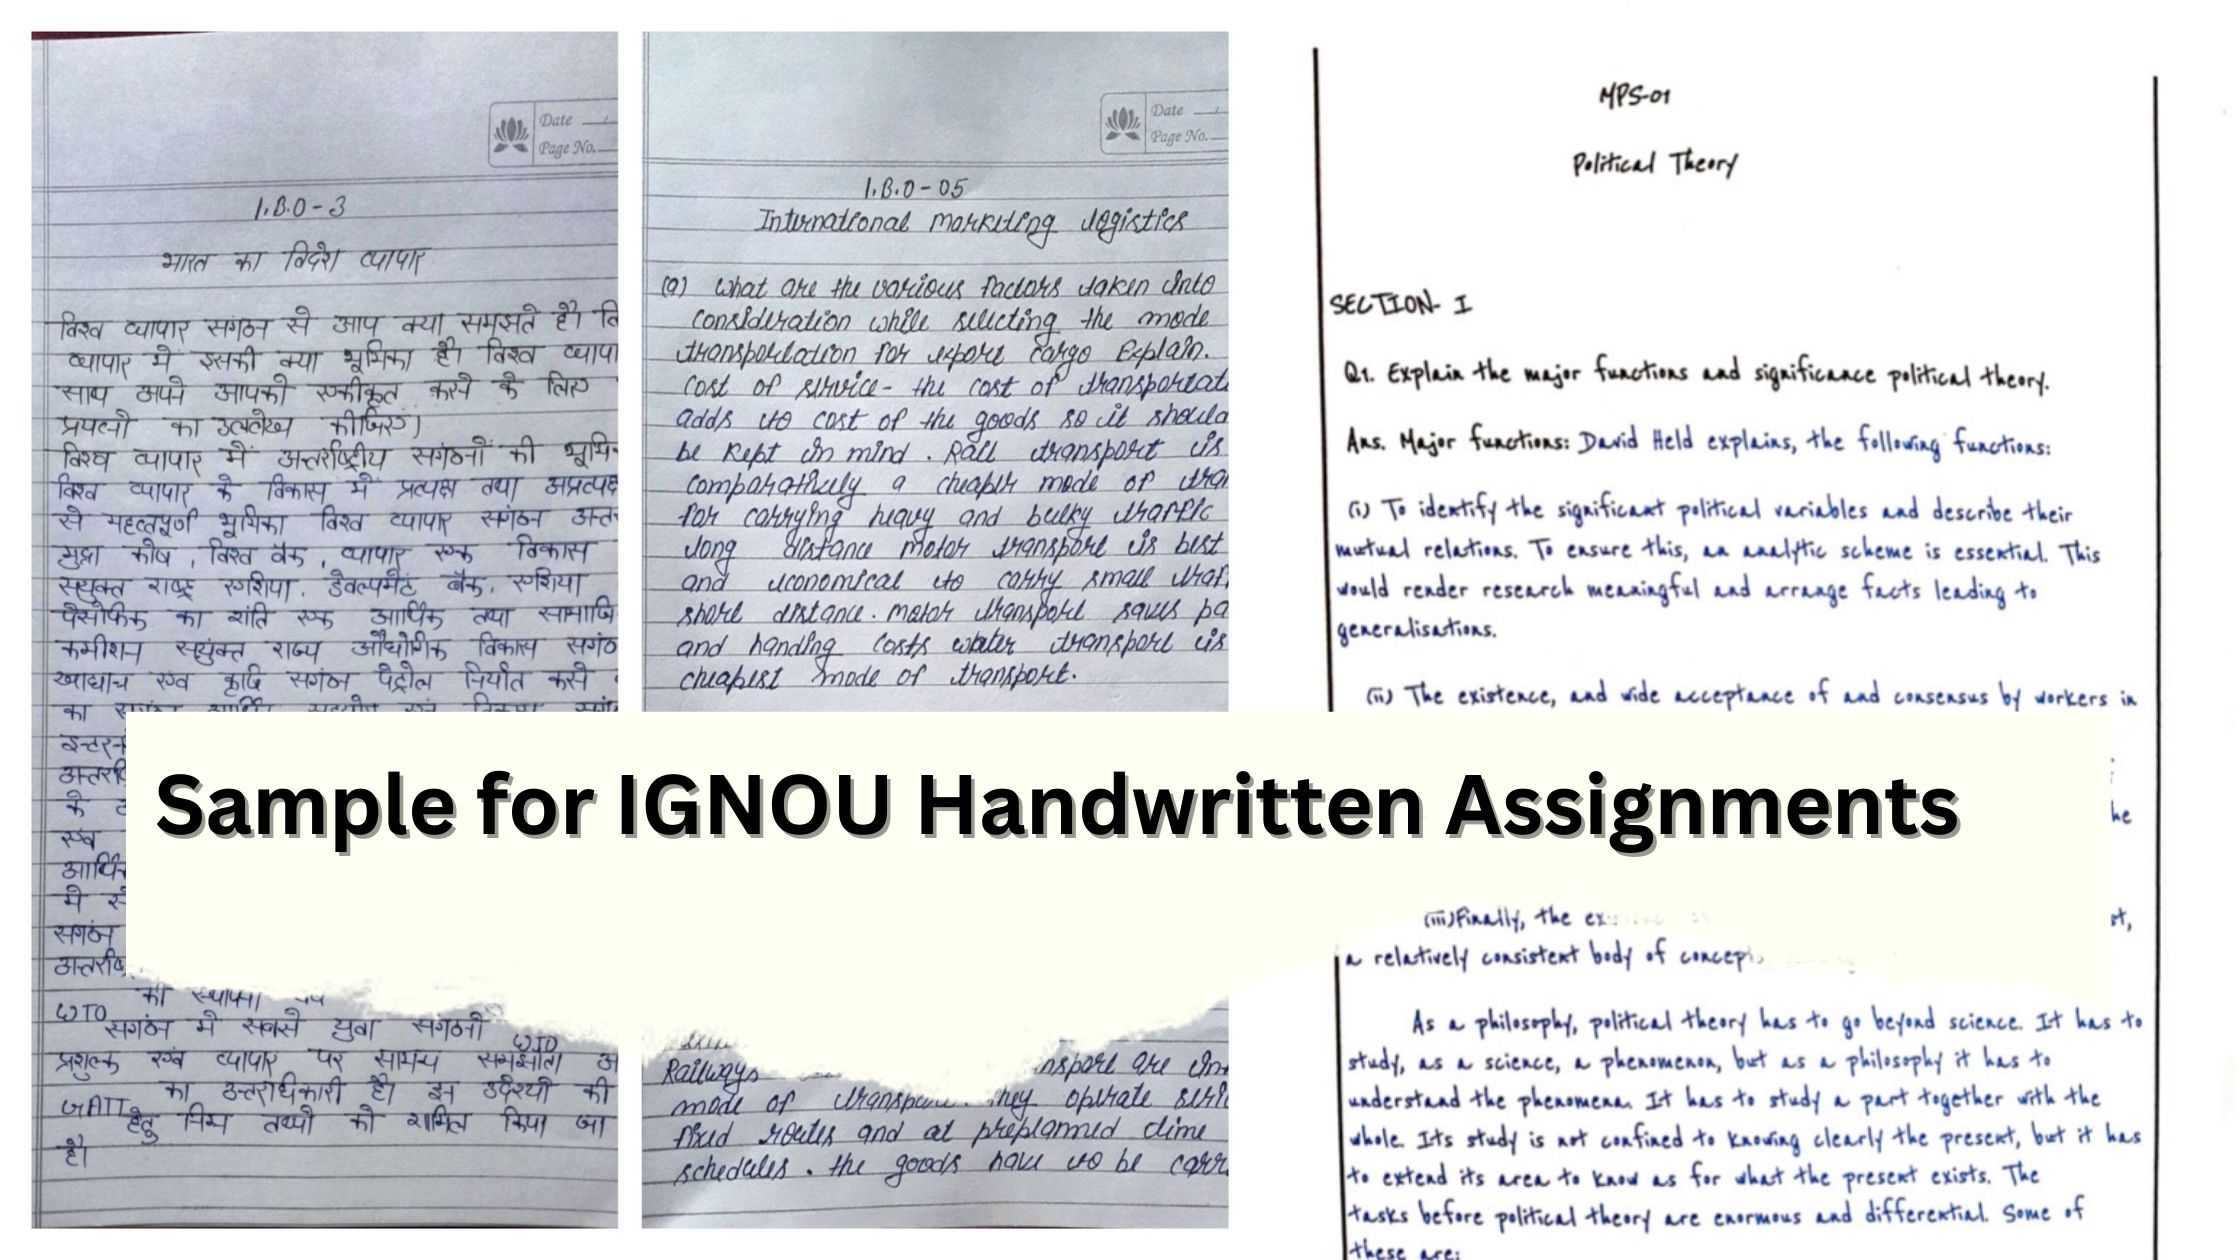 Date
Page No.
I.B.O-3
भारत का विदेश व्यापार
विश्व व्यापार संगठन से आप क्या समझते है।
व्यापार में इसकी क्या भूमिका है। विश्व
साथ अपने आपको एकीकृत करने के लिए
प्रयत्नो का उल्लेख कीजिए।
विश्व व्यापार में अन्तर्राष्ट्रीय संगठनों की
विश्व व्यापार के विकास में प्रत्यक्ष तथा
से महत्वपूर्ण भूमिका विश्व व्यापार संगठन
मुद्रा कोष, विश्व बैंक, व्यापार एक विकास
सयुक्त राष्ट्र एशिया. डेवल्पमेंट बैंक. एशिया
पेसेफिक का शांति एक आर्थिक तथा
कमीशन सयुंक्त राज्य औधोगिक विकास
एव कृषि सगंठन पेट्रोल निर्यात
का
के
एव
में
सगंठन
की स्थापना
WTO
सगंठन में सबसे युवा सगंठनो
WTO
प्रशुल्क एवं व्यापार पर सामन्य समझौता
का उत्तराधिकारी है। इन उदेश्यो की
GATT
हेतु निम्न तथ्यो को शामिल किया जा
है।
Date
Page No.
I.B.O-05
International marketing logistics
(Q) what are the various factors taken into
consideration while selecting the mode
transportation for export cargo Explain.
cost of service- the cost of
adds to cost of the goods so it should
be kept in mind. Rail transport is
comparatively a cheaper mode of
for carrying heavy and bulky traffic
long distance motor transport is best
and economical to carry small
short distance. motor transport saves
and handing costs water transport is
cheapest mode of transport.
Railways are
mode of they operate
fixed routes and at preplanned time
schedules. the goods have to be
MPS-01
Political Theory
SECTION- I
Q1. Explain the major functions and significance political theory.
Ans. Major functions: David Held explains, the following functions:
(i) To identify the significant political variables and describe their
mutual relations. To ensure this, an analytic scheme is essential. This
would render research meaningful and arrange facts leading to
generalisations.
(ii) The existence, and wide acceptance of and consensus by workers in
Sample for IGNOU Handwritten Assignments
(iii)Finally, the
a relatively consistent body of
As a philosophy, political theory has to go beyond science. It has to
study, as a science, a phenomenon, but as a philosophy it has to
understand the phenomena. It has to study a part together with the
whole. Its study is not confined to knowing clearly the present, but it has
to extend its area to know as for what the present exists. The
tasks before political theory are enormous and differential. Some of
these are: